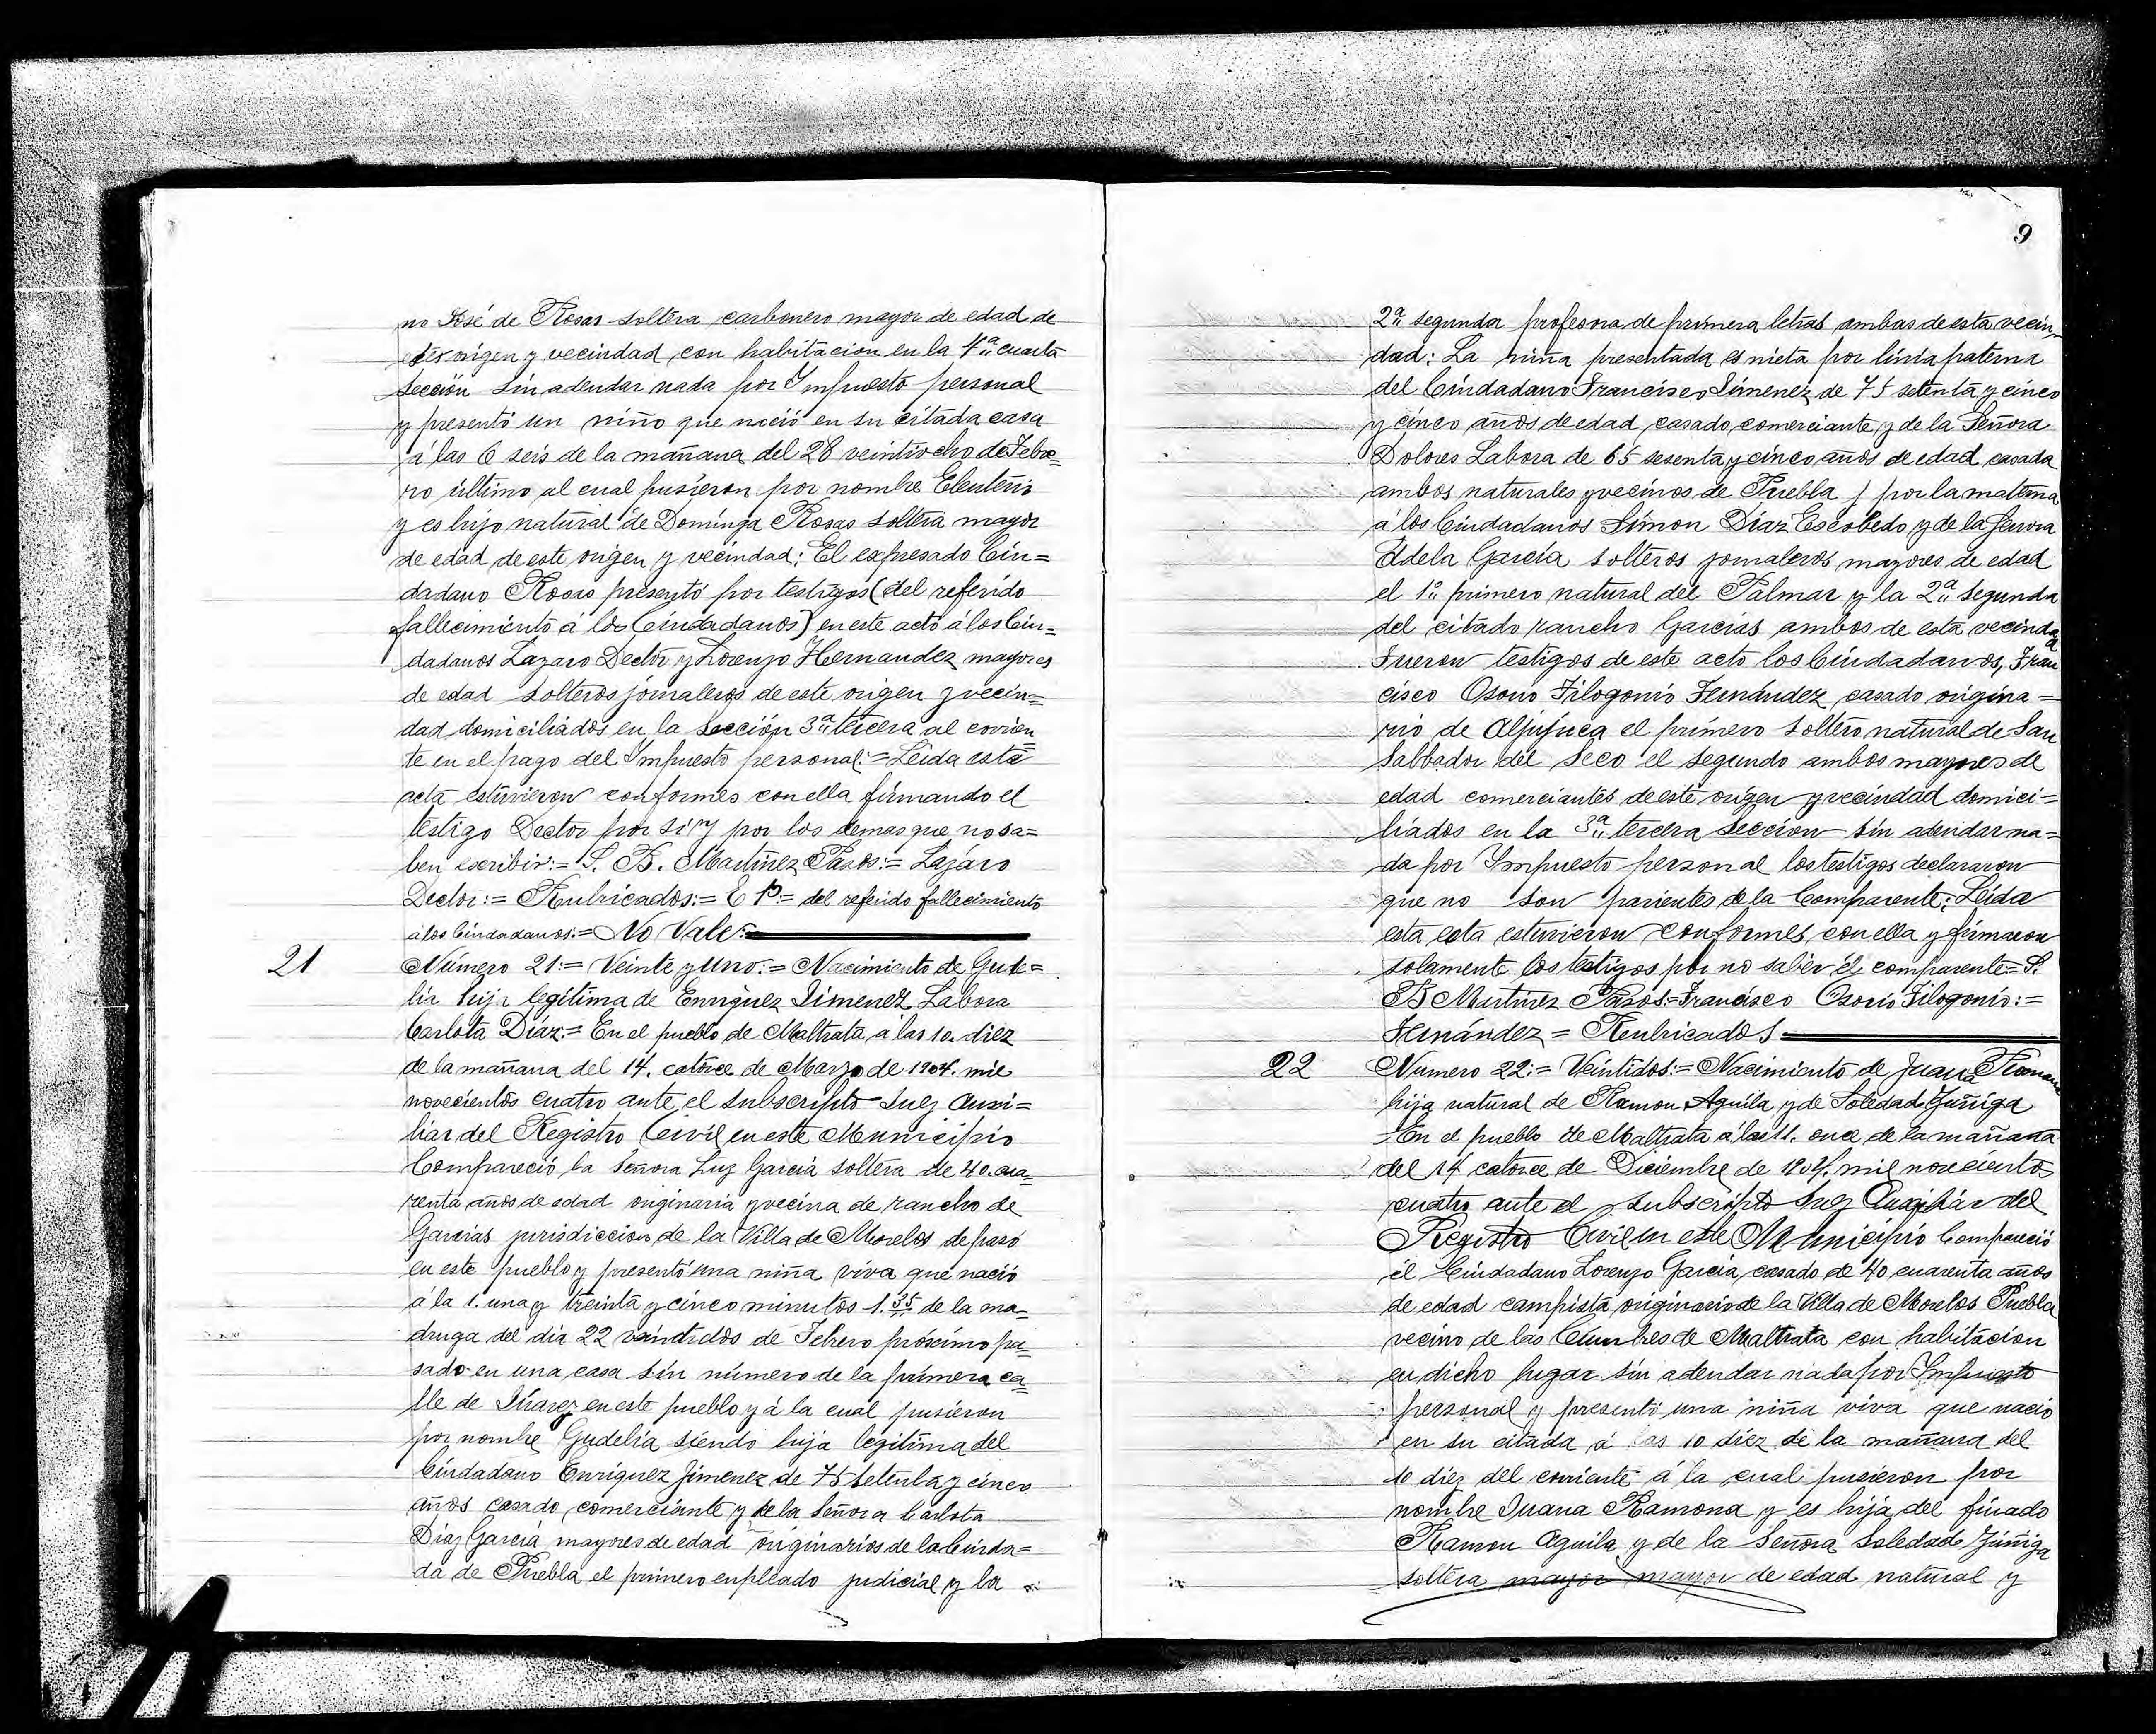 no José de Rosas soltera carbonero mayor de edad de
este origen y vecindad con habitacion en la 4ª cuarta
sección sin adeudar nada por Impuesto personal
y presentó un niño que nació en su citada casa
á las 6 seis de la mañana del 28 veintiocho de Febre=
ro último al cual pusieron por nombre Eleuterio
y es hijo natural de Dominga Rosas soltera mayor
de edad de este origen y vecindad: El expresado Ciu=
dadano Rosas presentó por testigos (del referido
fallecimiento á los Ciudadanos) en este acto á los Ciu=
dadanos Lazaro Dector y Lorenzo Hernandez mayores
de edad solteros jornaleros de este origen y vecin=
dad domiciliados en la sección 3ª tercera al corrien
te en el pago del Impuesto personal:= Leida esta
acta estuvieron conformes con ella firmando el
testigo Dector por si y por los demas que no sa=
ben escribir:= S. B. Martinez Pasos:= Lazaro
Dector:= Rubricados:= E P:= del referido fallecimiento
á los Ciudadanos:= No Vale:=
21 Número 21:= Veinte y uno:= Nacimiento de Gude=
lia hija legítima de Enriquez Jimenez Labora
Carlota Díaz:= En el pueblo de Maltrata á las 10. diez
de la mañana del 14. catorce de Marzo de 1904. mil
novecientos cuatro ante el subscripto Juez Auxi=
liar del Registro Civil en este Municipio
Compareció la Señora Luz Garcia soltera de 40. cua=
renta años de edad originaria y vecina de rancho de
Garcias jurisdiccion de la Villa de Morelos de paso
en este pueblo y presentó una niña viva que nació
á la 1. una y treinta y cinco minutos 1.35 de la ma=
druga del dia 22 veintidos de Febrero próximo pa=
sado en una casa sin número de la primera ca=
lle de Juarez en este pueblo y á la cual pusieron
por nombre Gudelia siendo hija legitima del
Ciudadano Enriquez Jimenez de 75 setenta y cinco
años casado comerciante y de la Señora Carlota
Diaz García mayores de edad originarios de la Ciuda=
da de Puebla el primero enpleado judicial y la
9
2ª segunda profesora de primera letras ambas de esta vecin=
dad: La niña presentada es nieta por linia paterna
del Ciudadano Francisco Jimenez de 75 setenta y cinco
y cinco años de edad casado comerciante y de la Señora
Dolores Labora de 65 sesenta y cinco años de edad casada
ambos naturales y vecinos de Puebla y por la materna
á los Ciudadanos Símon Díaz Escobedo y de la Senora
Adela García solteros jornaleros mayores de edad
el 1º primero natural del Palmar y la 2ª segunda
del citado rancho Garcias ambos de esta vecindad
Fueron testigos de este acto los Ciudadanos, Fran
cisco Osorio Filogonio Fernández casado origina=
rio de Aljojuca el primero soltero natural de San
Salbador del Seco el segundo ambos mayores de
edad comerciantes de este origen y vecindad domici=
liados en la 3ª tercera seccion sin adeudar na=
da por Impuesto personal los testigos declararon
que no son parientes de la Comparente: Leida
esta esta estuvieron conformes con ella y firmaron
solamente los testigos por no saber él comparente= S.
B Martinez Pasos:= Francisco Osorio Filogonio:=
Fernández= Rubricados
22 Numero 22:= Veintidos:= Nacimiento de Juana Ramona
hija natural de Ramon Aguila y de Soledad Zuñiga
En el pueblo de Maltrata á las 11. once de la mañana
del 14 catorce de Diciembre de 1904. mil novecientos
cuatro ante el subscripto Juez Auxiliar del
Registro Civil en este Municipio Compareció
él Ciudadano Lorenzo Garcia casado de 40 cuarenta años
de edad campista originario de la Villa de Morelos Puebla
vecino de las Cumbres de Maltrata con habitacion
en dicho lugar sin adeudar nada por Impuesto
personal y presentó una niña viva que nacio
en su citada á las 10 diez de la mañana del
10 diez del corriente á la cual pusieron por
nombre Juana Ramona y es hija del finado
Ramon Aguila y de la Señora Soledad Zúñiga
soltera mayor mayor de edad natural y